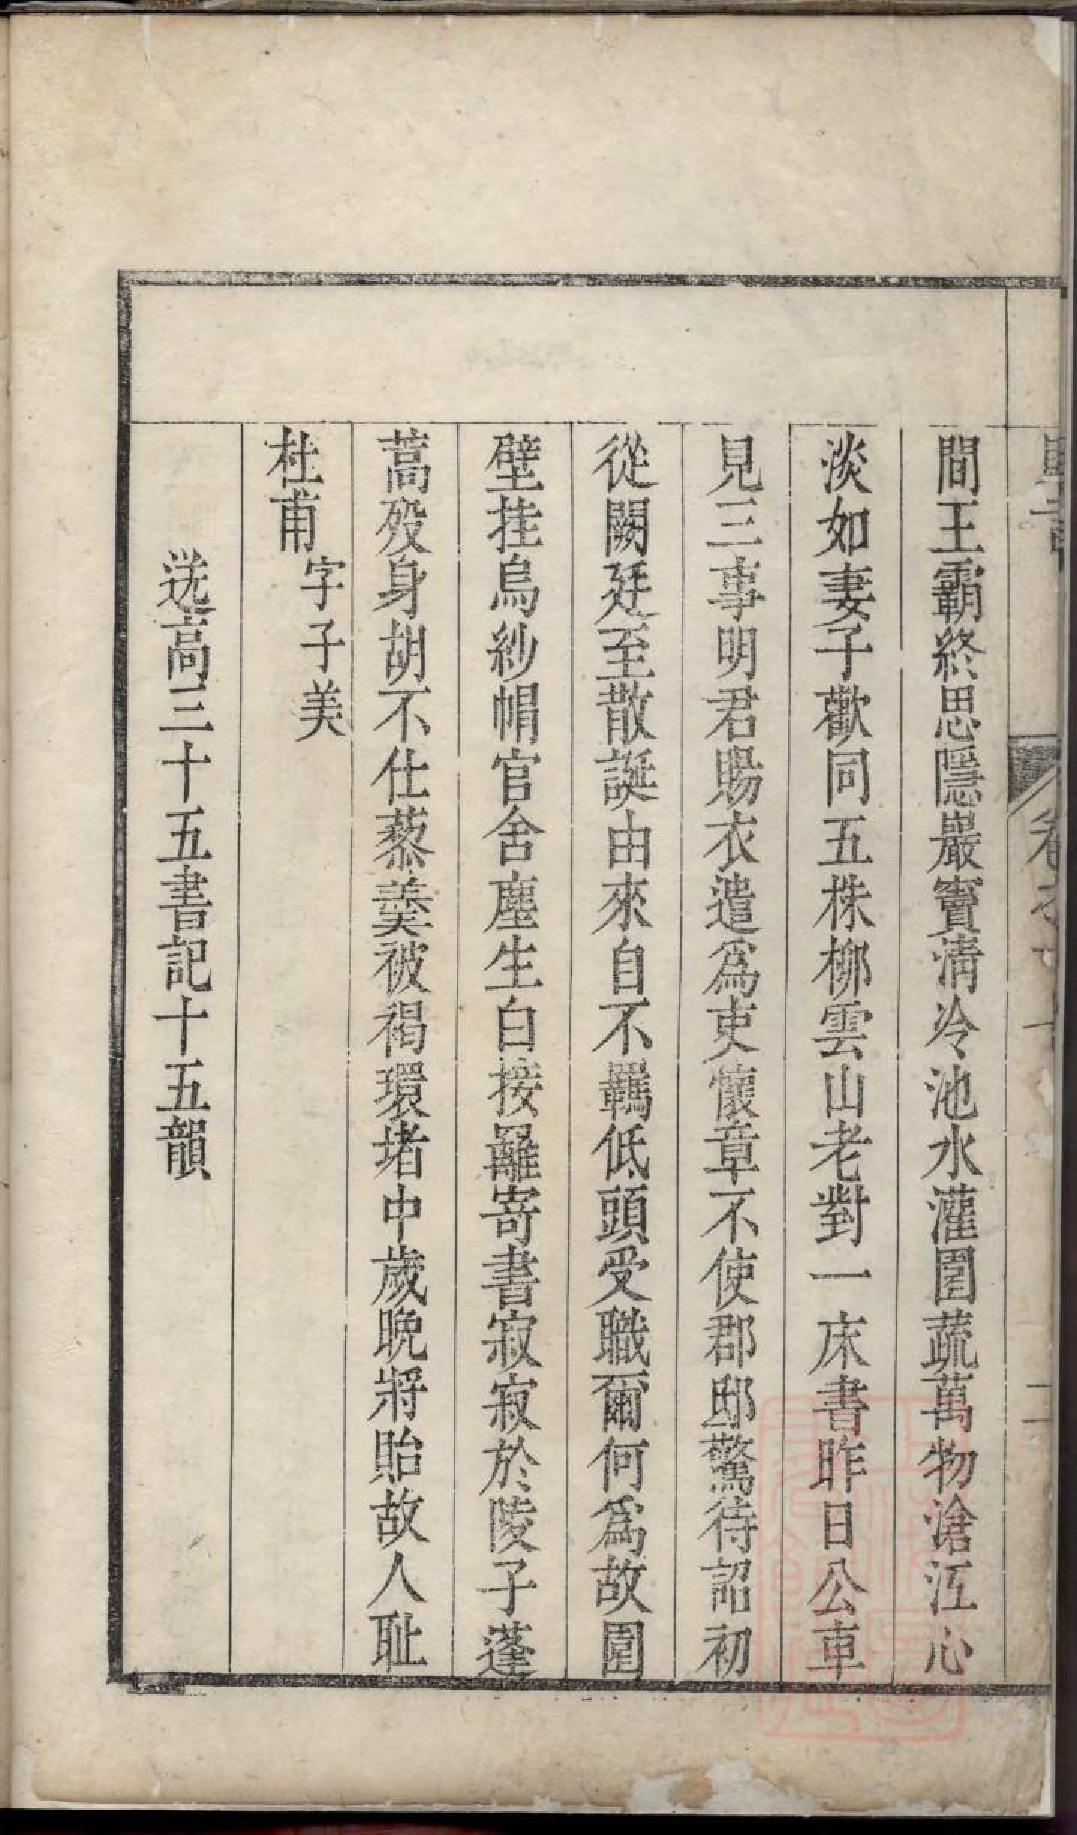 間王霸終思隱巖竇清冷池水灌園蔬萬物滄江心
淡如妻子歡同五株柳雲山老對一床書昨日公車
見三事明君賜衣遣為吏懷章不使郡邸驚待詔初
從闕廷至散誕由來自不羈低頭受職爾何為故園
壁挂烏紗帽官舍塵生白接䍦寄書寂寂於陵子蓬
蒿歿身胡不仕藜羹被褐環堵中歲晚將貽故人耻
杜甫
字子美
送高三十五書記十五韻